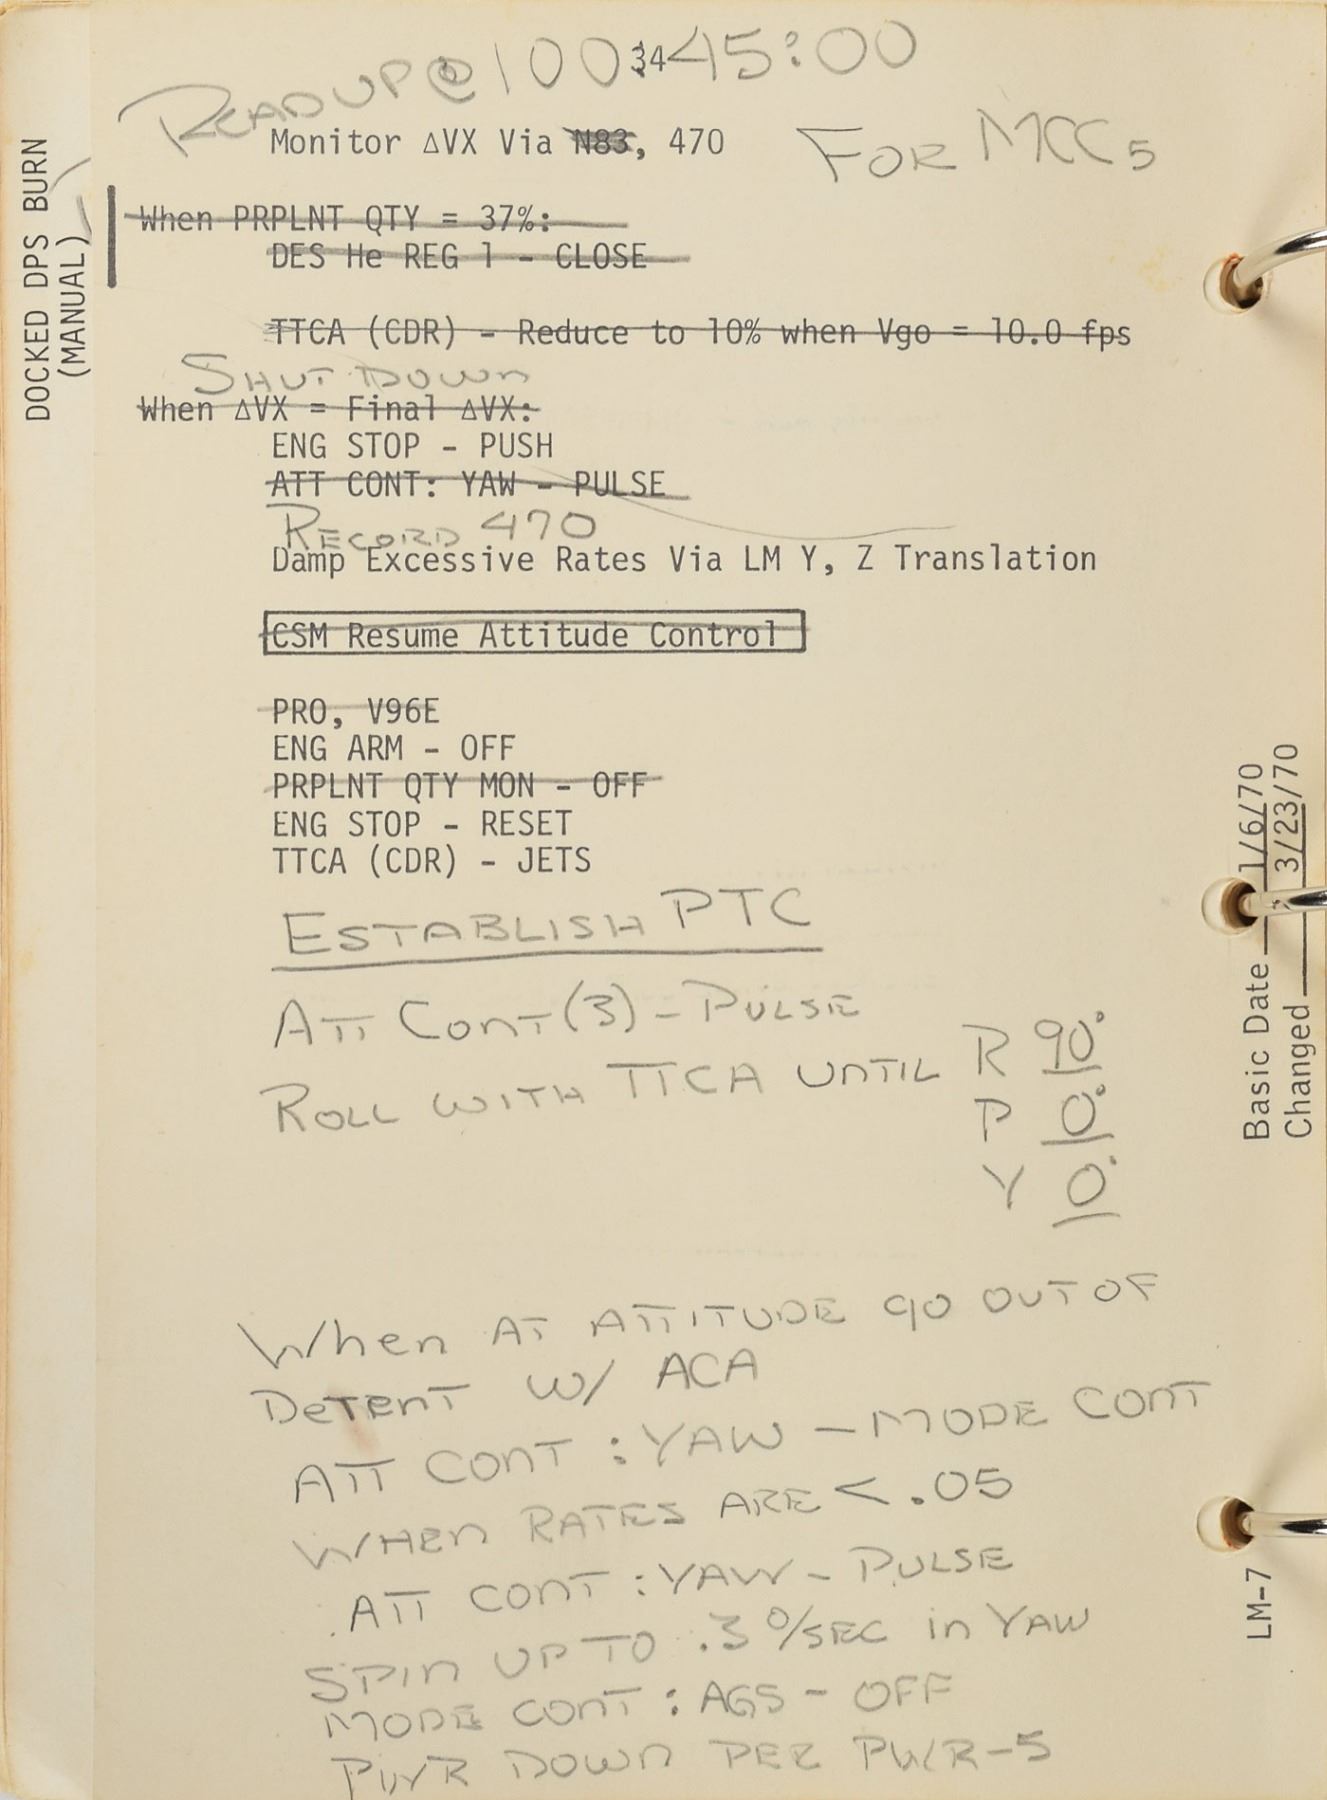 READ UP @ 100 45:00
34
Monitor ΔVX Via N83, 470
FOR MCC5
DOCKED DPS BURN
(MANUAL)
When PRPLNT QTY = 37%:
DES He REG 1 - CLOSE
TTCA (CDR) - Reduce to 10% when Vgo = 10.0 fps
SHUT DOWN
When ΔVX = Final ΔVX:
ENG STOP - PUSH
ATT CONT: YAW - PULSE
RECORD 470
Damp Excessive Rates Via LM Y, Z Translation
CSM Resume Attitude Control
PRO, V96E
ENG ARM - OFF
PRPLNT QTY MON - OFF
ENG STOP - RESET
TTCA (CDR) - JETS
ESTABLISH PTC
ATT CONT (3) - PULSE
ROLL WITH TTCA UNTIL R 90°
P 0°
Y 0°
When AT ATTITUDE go OUT OF
DETENT W/ ACA
ATT CONT : YAW - MODE CONT
WHEN RATES ARE < .05
ATT CONT : YAW - PULSE
SPIN UP TO .3 °/SEC in YAW
MODE CONT : AGS - OFF
PWR DOWN PER PWR-5
Basic Date 1/6/70
Changed 3/23/70
LM-7